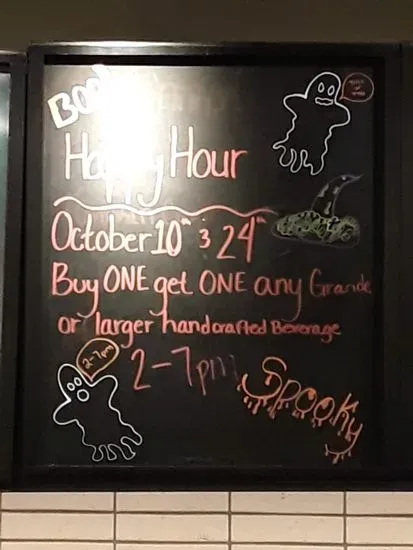 BOO!
Happy Hour
October 10th & 24th
Buy ONE get ONE any Grande
or larger handcrafted Beverage
2-7pm
2-7pm
Spooky